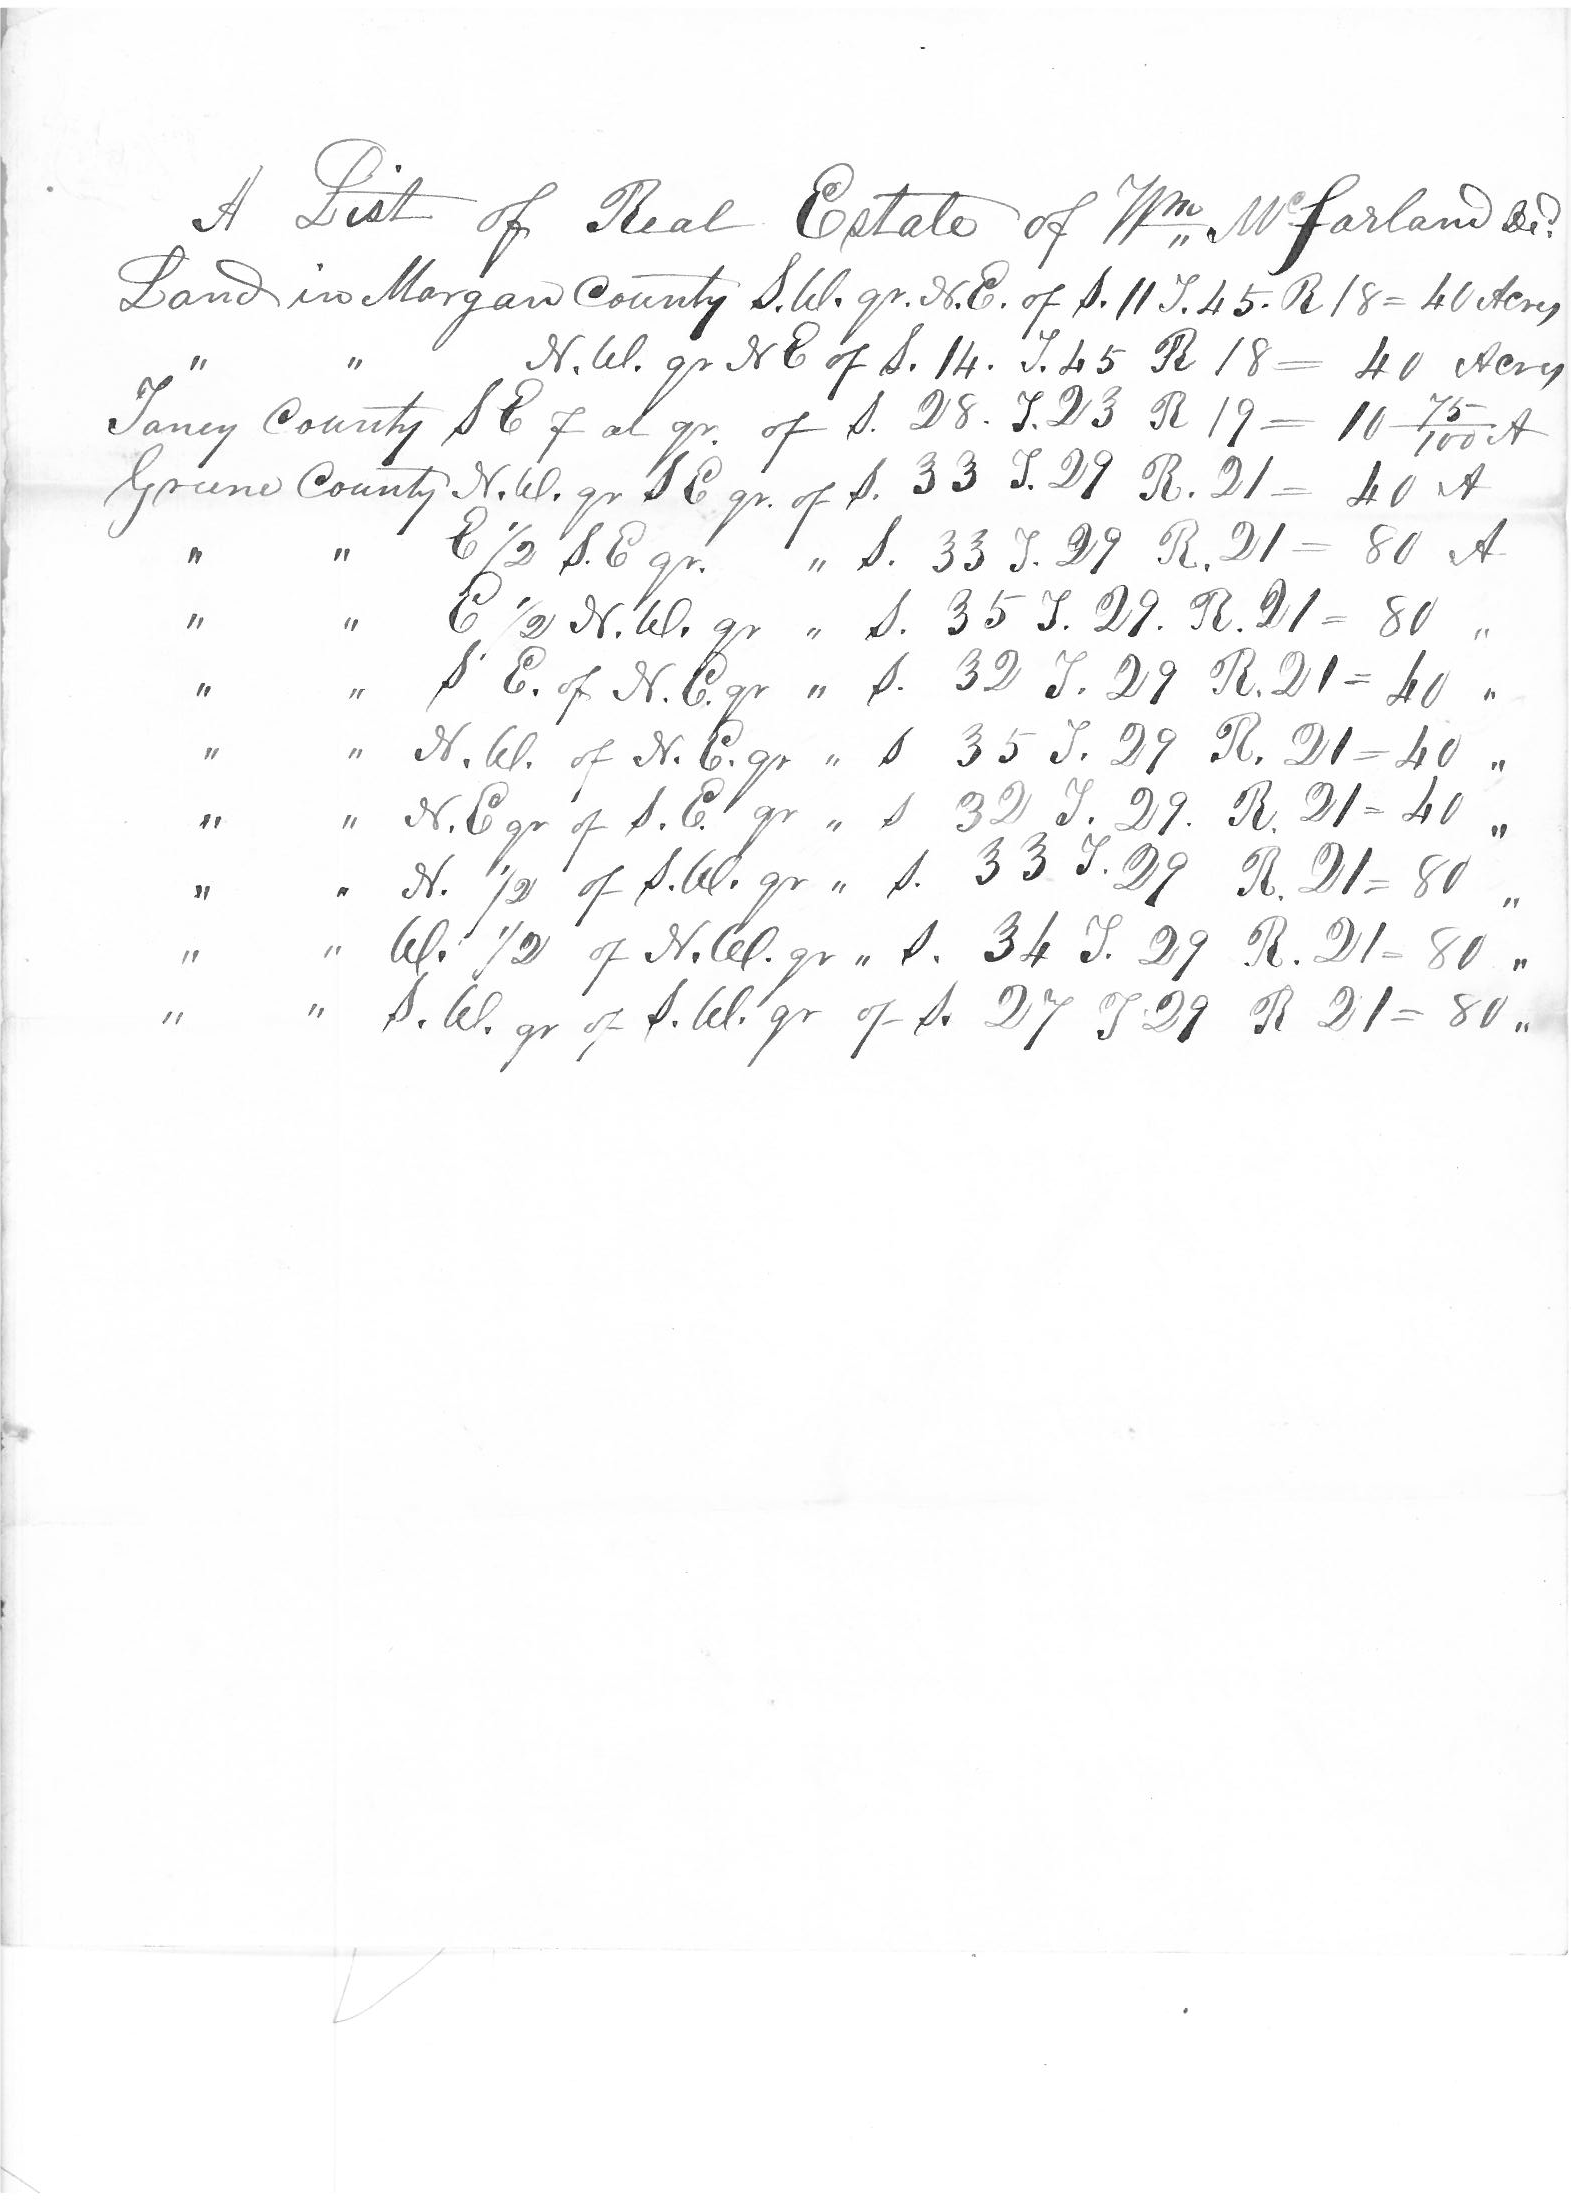 A List of Real Estate of Wm McFarland De'd.
Land in Morgan County S.W. qr. N.E. of S. 11 T. 45. R 18 = 40 Acres
" " N.W. qr N E of S. 14. T. 45 R 18 = 40 Acres
Taney County S E f al qr. of S. 28. T. 23 R 19 = 10 75/100 A
Greene County N.W. qr S E qr. of S. 33 T. 29 R. 21 = 40 A
" " E 1/2 S. E qr. " S. 33 T. 29 R. 21 = 80 A
" " E 1/2 N. W. qr " S. 35 T. 29. R. 21 = 80 "
" " S E. of N. E. qr " S. 32 T. 29 R. 21 = 40 "
" " N. W. of N. E. qr " S 35 T. 29 R. 21 = 40 "
" " N. E qr of S. E. qr " S 32 T. 29. R. 21 = 40 "
" " N. 1/2 of S. W. qr " S. 33 T. 29 R. 21 = 80 "
" " W. 1/2 of N. W. qr " S. 34 T. 29 R. 21 = 80 "
" " S. W. qr of S. W. qr of S. 27 T 29 R 21 = 80 "